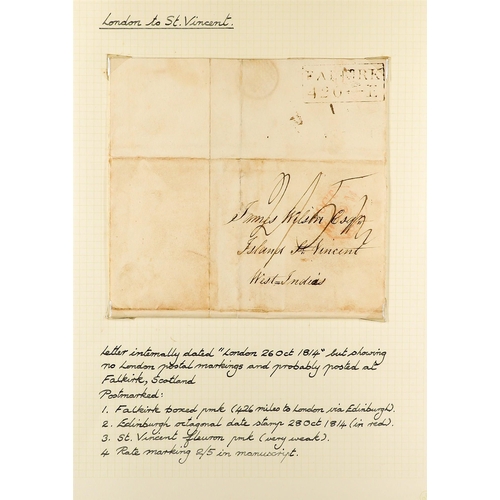 London to St. Vincent.
FALKIRK
420 E
James Wilson Esqr
Island St Vincent
West Indies
Letter internally dated "London 26 Oct 1814" but showing
no London postal markings and probably posted at
Falkirk, Scotland
Postmarked:
1. Falkirk boxed pmk (426 miles to London via Edinburgh).
2. Edinburgh octagonal date stamp 28 Oct 1814 (in red).
3. St. Vincent fleuron pmk (very weak).
4 Rate marking 2/5 in manuscript.